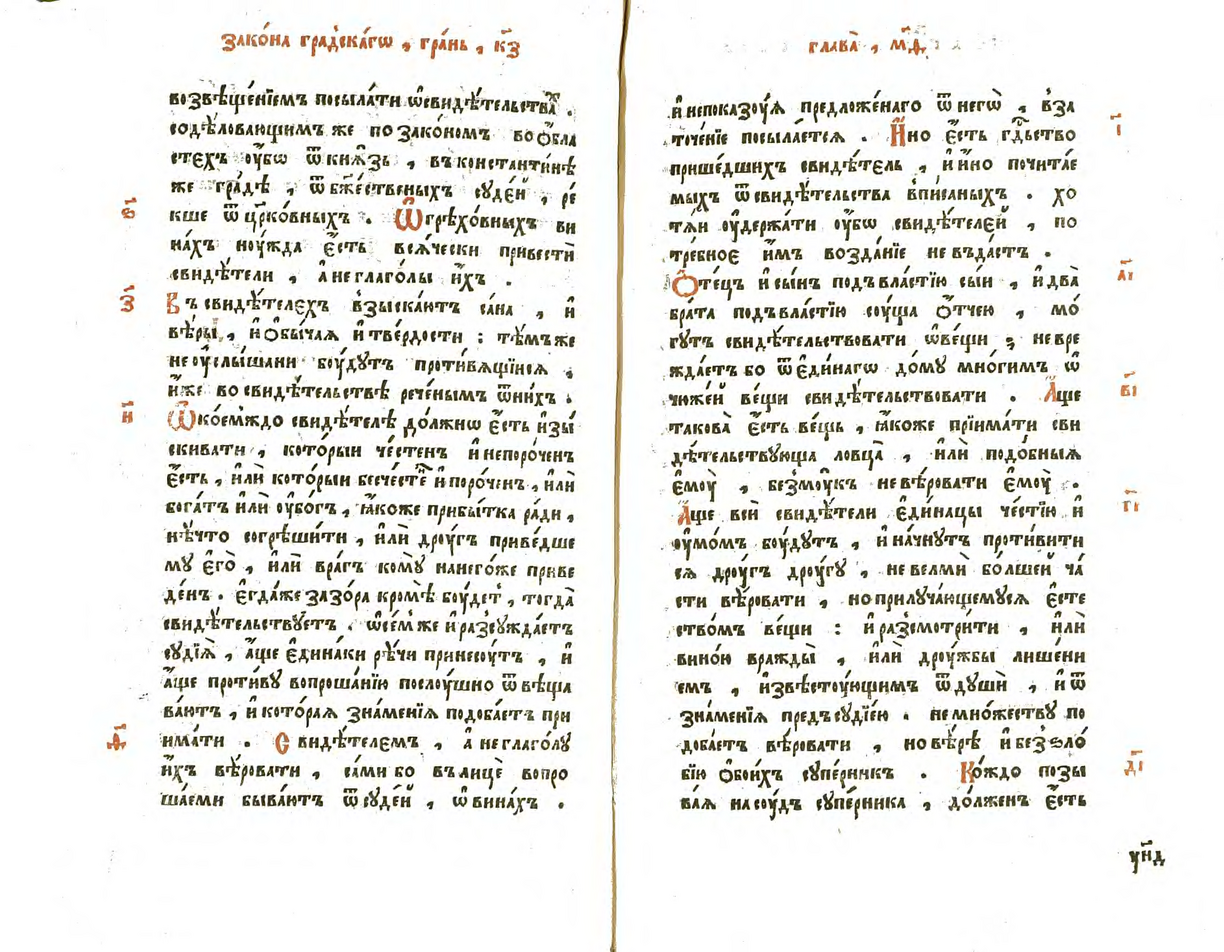 Зако́на гра́дскагѡ , гра́нь , к҃з
возвѣще́нїемъ посыла́ти ѡ҆свидѣ́тельства .
содѣ́ловающимъ же по зако́номъ во ѻ҆бла
стехъ ᲂу҆́бѡ ѿ кнѧ́зь , въ константи́нѣ
же гра́дѣ , ѿ бж҃е́ственыхъ сꙋде́й , ре́
кше ѿ цр҃ко́вныхъ . Ѿ грѣхо́вныхъ ви
на́хъ ноу́жда є҆́сть всѧ́чески привестѝ
свидѣ́тели , а҆ не глаго́лы и҆́хъ .
ѕ҃
Въ свидѣ́телехъ взыска́ютъ са́на , и҆
з҃
вѣ́ры , и҆ ѻ҆бы́чаѧ и҆ тве́рдости : тѣ́мъ же
не ᲂу҆слы́шани боу́дутъ проти́вѧщїисѧ ,
и҆́же во свидѣ́тельствѣ рече́нымъ ѿ ни́хъ .
Ѡ҆ кое́мждо свидѣ́телѣ до́лжнѡ є҆́сть и҆зы
и҃
скивати , кото́рыи че́стенъ и҆ непоро́ченъ
є҆́сть , и҆лѝ кото́рыи бесче́сте и҆ поро́ченъ , и҆лѝ
бога́тъ и҆лѝ ᲂу҆бо́гъ , ꙗ҆́коже прибы́тка ра́ди ,
нѣ́что согрѣши́ти , и҆лѝ дроу́гъ приве́дше
мꙋ є҆гѡ̀ , и҆лѝ вра́гъ комꙋ̀ на него́же приве
де́нъ . є҆гда́же зазо́ра кромѣ̀ боу́детъ , тогда̀
свидѣ́тельствꙋетъ . ѡ҆ се́мже и҆ разсꙋжда́етъ
сꙋдїѧ̀ , а҆́ще є҆дина́ки рѣ́чи принесоу́тъ , и҆
а҆́ще проти́вꙋ вопроша́нїю послоу́шно ѿвѣща
ва́ютъ , и҆ кото́раѧ зна́менїѧ подоба́етъ при
има́ти . Свидѣ́телемъ , а҆ не глаго́лꙋ
ѳ҃
и҆́хъ вѣ́ровати , са́ми бо въ лицѐ вопро
ша́еми быва́ютъ ѿ сꙋде́й , ѡ҆ вина́хъ .
глава̀ , м҃д
и҆ непоказоу́ѧ предложе́наго ѿ негѡ̀ , вза
точе́нїе посыла́етсѧ . И҆́но є҆́сть гд҇ьство
і҃
прише́дшихъ свидѣ́тель , и҆ и҆́но почита́е
мыхъ ѿ свидѣ́тельства впи́саныхъ . хо
тѧ́и ᲂу҆держа́ти ᲂу҆́бѡ свидѣ́телей , по
тре́бное и҆̀мъ возда́нїе не въда́стъ .
Ѻ҆те́цъ и҆ сы́нъ под вла́стїю сы́и , и҆ два̀
а҃і
бра́та под вла́стїю соу́ща ѻ҆́тчею , мо́
гꙋтъ свидѣ́тельствовати ѡ҆ ве́щи ; не вре
жда́етъ бо ѿ є҆ди́нагѡ до́мꙋ мно́гимъ ѡ҆
чюже́й ве́щи свидѣ́тельствовати . А҆́ще
в҃і
такова̀ є҆́сть ве́щь , ꙗ҆́коже прїима́ти сви
дѣ́тельствꙋюща ловца̀ , и҆лѝ подо́быѧ
є҆моу̀ , без моу́къ не вѣ́ровати є҆моу̀ .
А҆́ще всѝ свидѣ́тели є҆ди́нацы че́стїю и҆
г҃і
ᲂу҆мо́мъ боу́дутъ , и҆ начну́тъ проти́вити
сѧ дроу́гъ дроу́гꙋ , не велмѝ бо́лшей ча́
сти вѣ́ровати , но прилꙋча́ющемꙋсѧ є҆сте
ство́мъ ве́щи : и҆ разсмотри́ти , и҆лѝ
вино́ю вражды̀ , и҆лѝ дроу́жбы лише́ни
емъ , и҆звѣстоу́ющимъ ѿ дꙋшѝ , и҆ ѿ
зна́менїѧ пред сꙋдїе́ю . не мно́жествꙋ по
доба́етъ вѣ́ровати , но вѣ́рѣ и҆ беззло́
бїю ѻ҆бои́хъ сꙋпе́рникъ . Ко́ждо позы
д҃і
ва́ѧ на соу́дъ сꙋпе́рника , до́лженъ є҆́сть
ун҃д